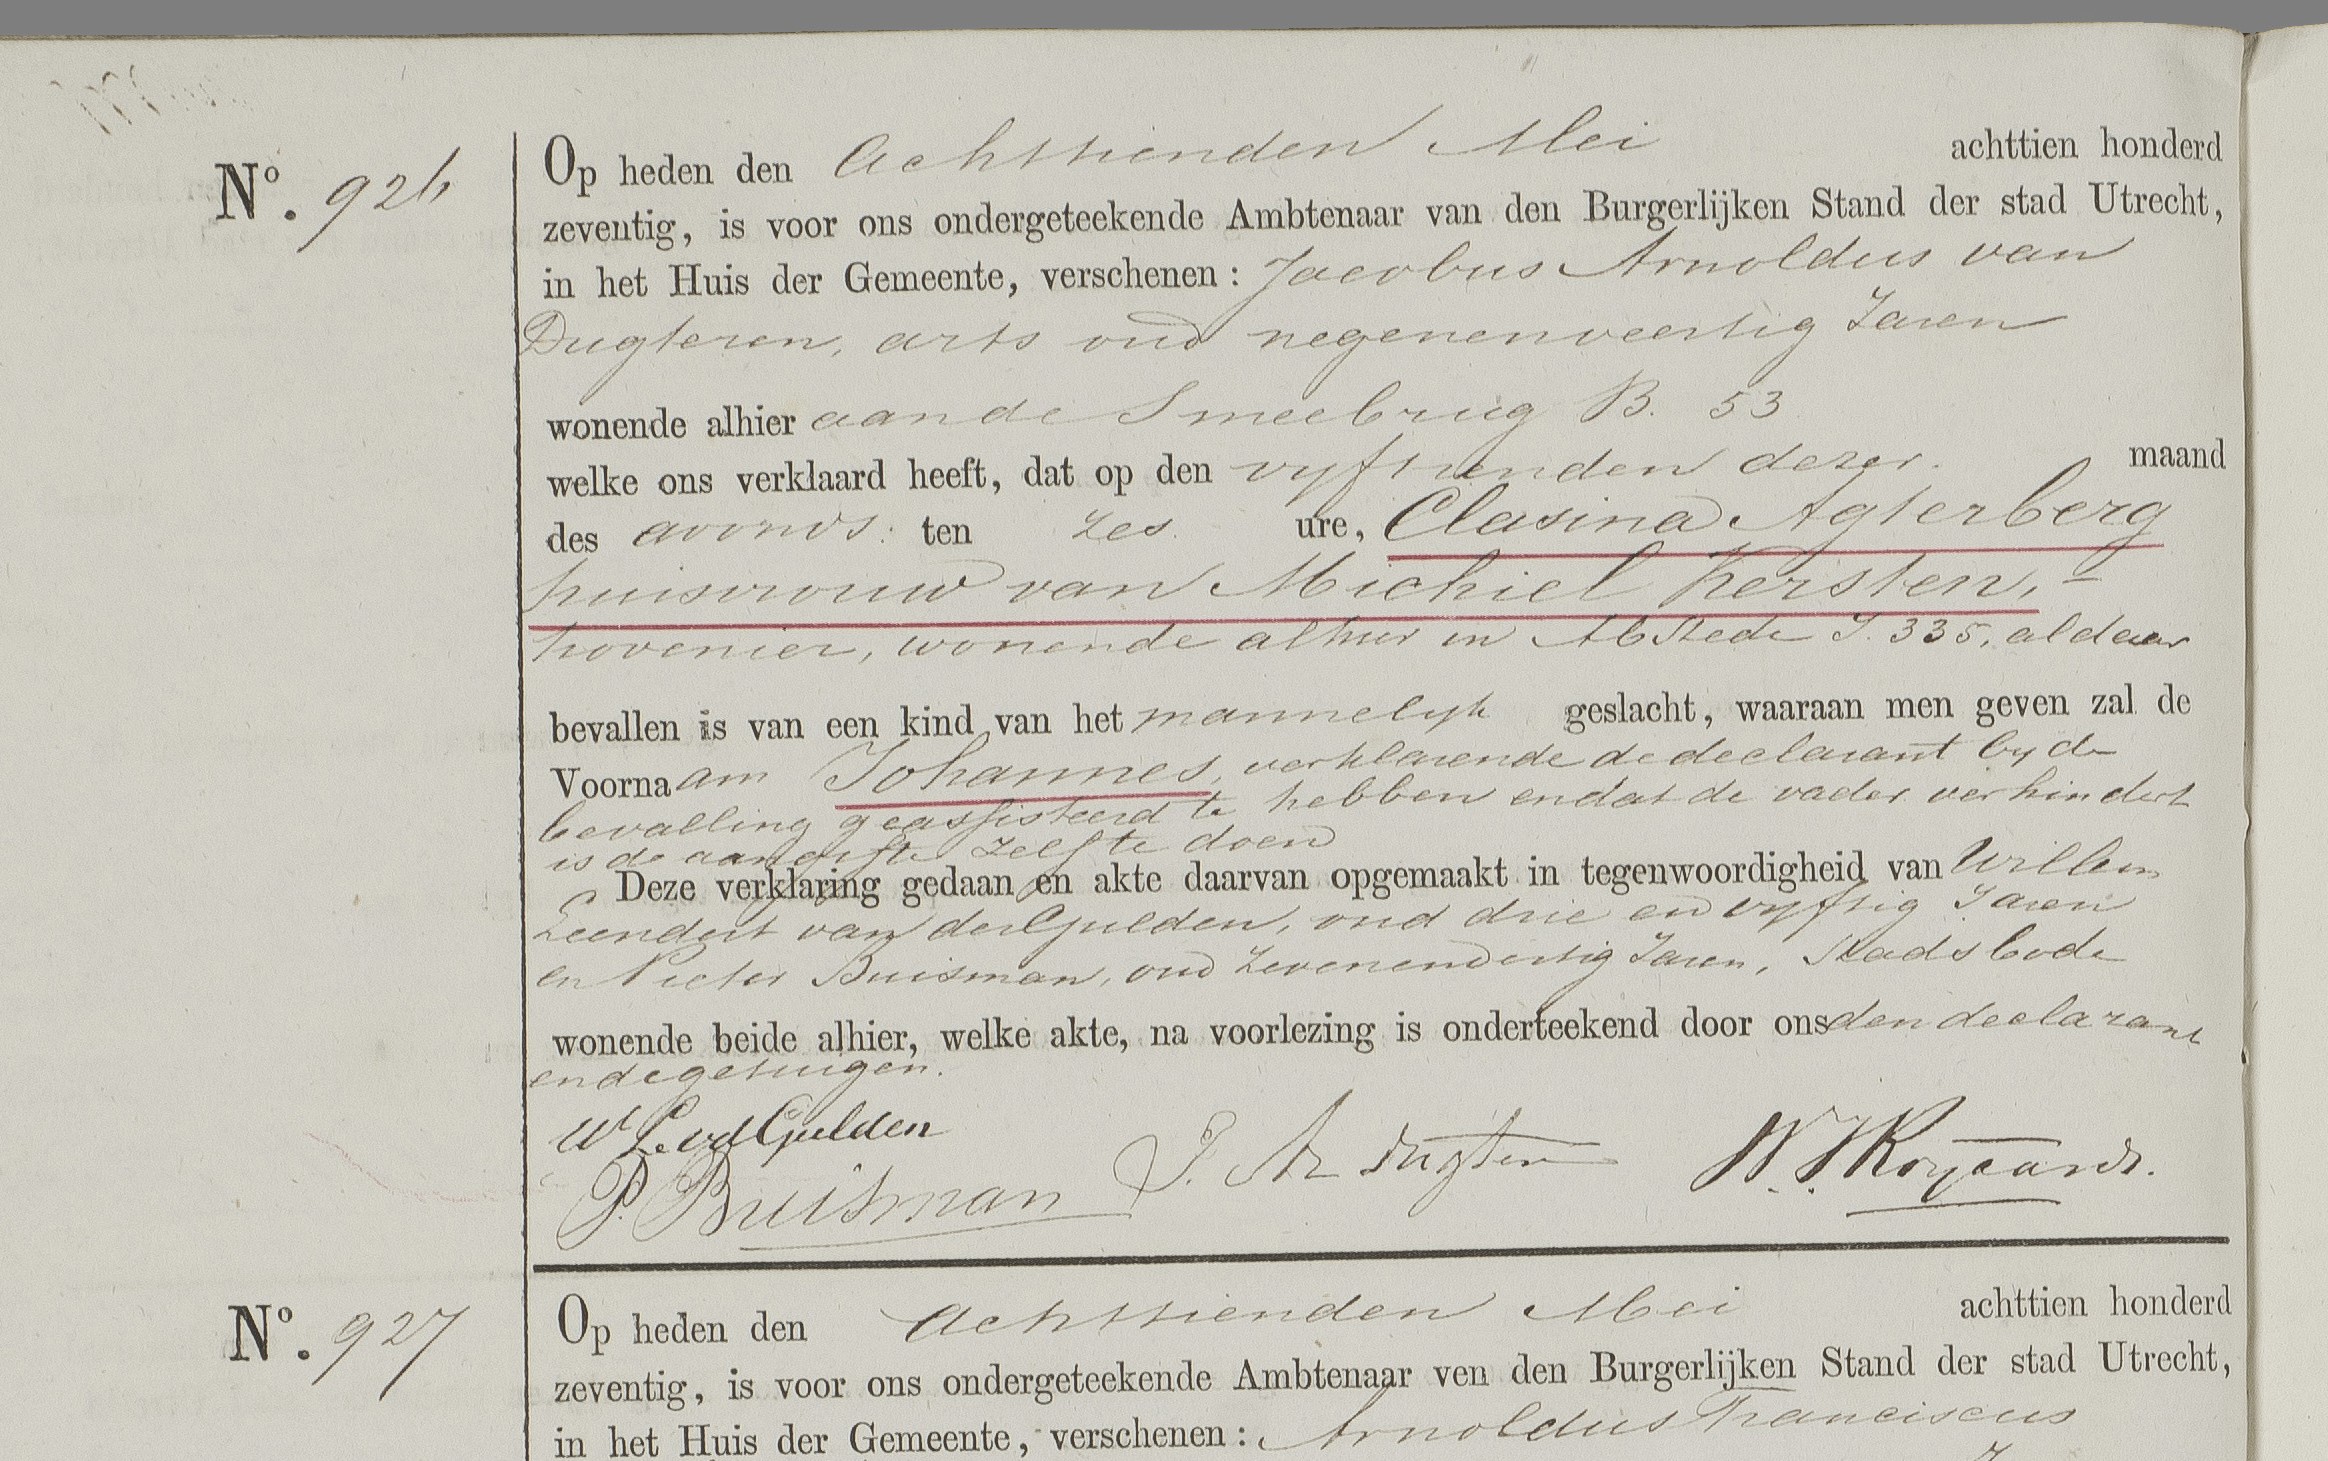 Nº. 926
Op heden den Achttienden Mei achttien honderd
zeventig, is voor ons ondergeteekende Ambtenaar van den Burgerlijken Stand der stad Utrecht,
in het Huis der Gemeente, verschenen: Jacobus Arnoldus van
Dugteren, arts oud negenenveertig Jaren
wonende alhier aan de Smeebrug B. 53
welke ons verklaard heeft, dat op den vyftienden dezer. maand
des avonds. ten zes. ure, Clasina Agterberg
huisvrouw van Michiel Kersten,
hovenier, wonende alhier in Abstede I. 335, aldaar
bevallen is van een kind van het mannelyk geslacht, waaraan men geven zal de
Voornaam Johannes, verklarende de declarant by de
bevalling geassisteerd te hebben en dat de vader verhindert
is de aangifte zelf te doen
Deze verklaring gedaan en akte daarvan opgemaakt in tegenwoordigheid van Willem
Leendert van der Gulden, oud drie en vyftig Jaren
en Pieter Buisman, oud zevenendertig Jaren, Stadsbode
wonende beide alhier, welke akte, na voorlezing is onderteekend door ons den declarant
en de getuigen.
W L. vd Gulden
P. Buisman J. A. v Dugteren W. J. Royaards.
Nº. 927
Op heden den Achttienden Mei achttien honderd
zeventig, is voor ons ondergeteekende Ambtenaar ven den Burgerlijken Stand der stad Utrecht,
in het Huis der Gemeente, verschenen: Arnoldus Franciscus